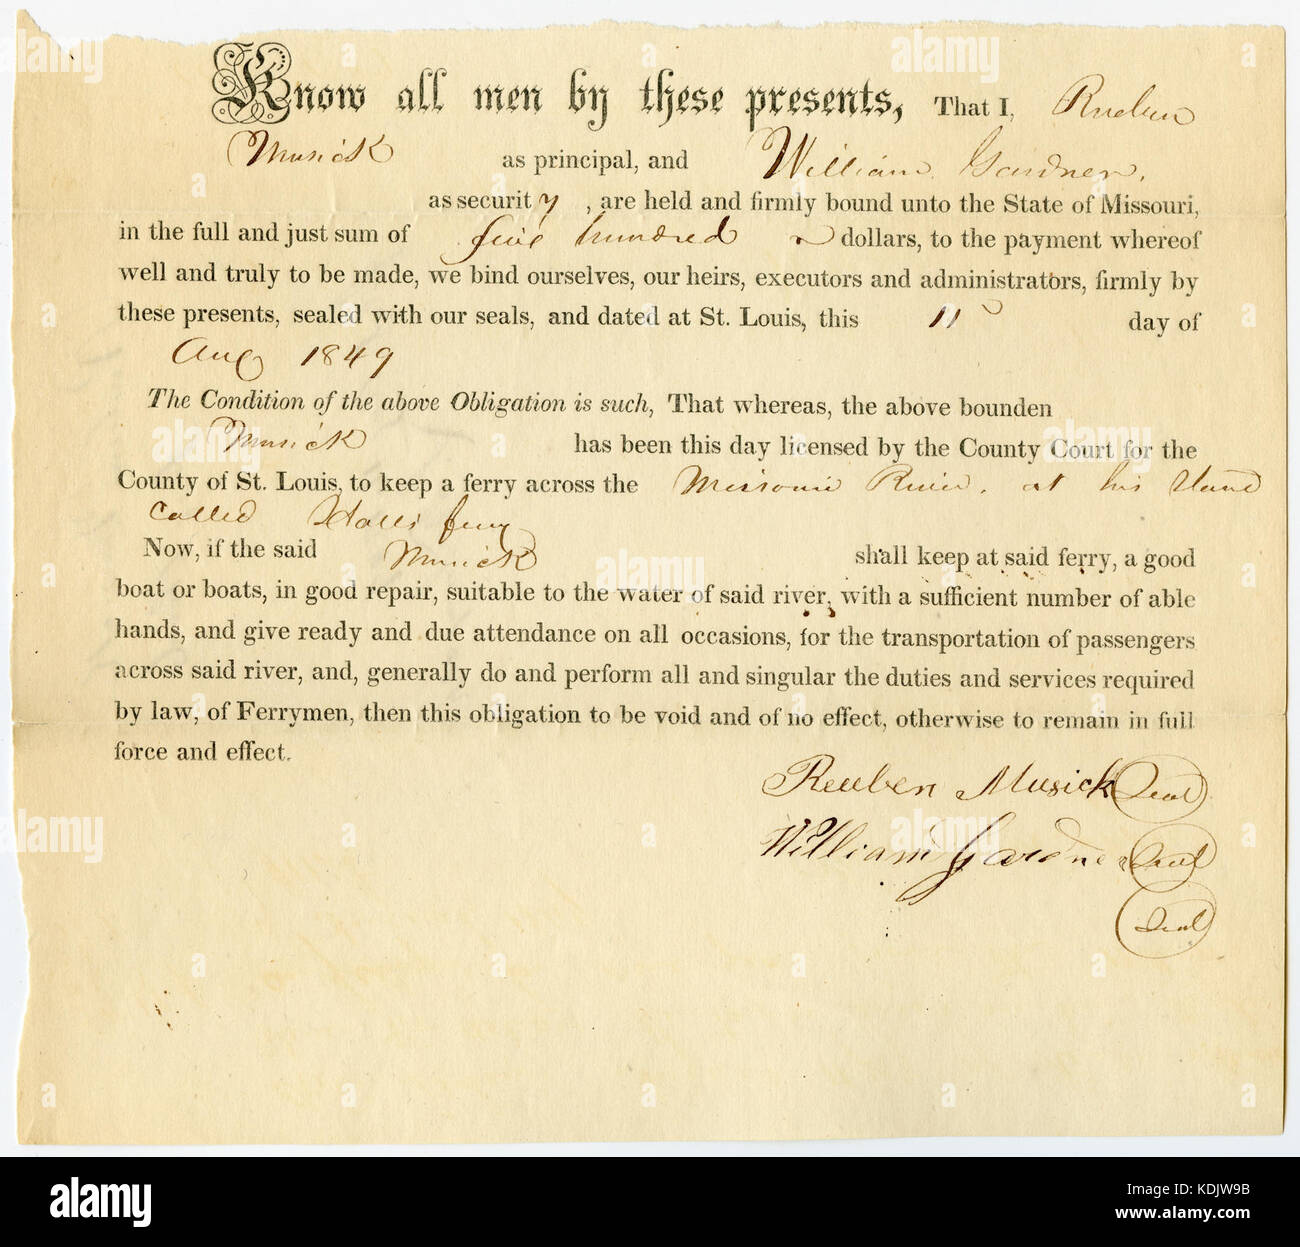 Know all men by these presents, That I, Rueben
Musick as principal, and William Gardner,
as security, are held and firmly bound unto the State of Missouri,
in the full and just sum of five hundred dollars, to the payment whereof
well and truly to be made, we bind ourselves, our heirs, executors and administrators, firmly by
these presents, sealed with our seals, and dated at St. Louis, this 11 day of
Aug 1849
The Condition of the above Obligation is such, That whereas, the above bounden
Musick has been this day licensed by the County Court for the
County of St. Louis, to keep a ferry across the Missouri River, at his stand
called Halls ferry
Now, if the said Musick shall keep at said ferry, a good
boat or boats, in good repair, suitable to the water of said river, with a sufficient number of able
hands, and give ready and due attendance on all occasions, for the transportation of passengers
across said river, and, generally do and perform all and singular the duties and services required
by law, of Ferrymen, then this obligation to be void and of no effect, otherwise to remain in full
force and effect.
Reuben Musick Seal
William Gardner Seal
Seal
alamy
Image ID: KDJW9B
www.alamy.com